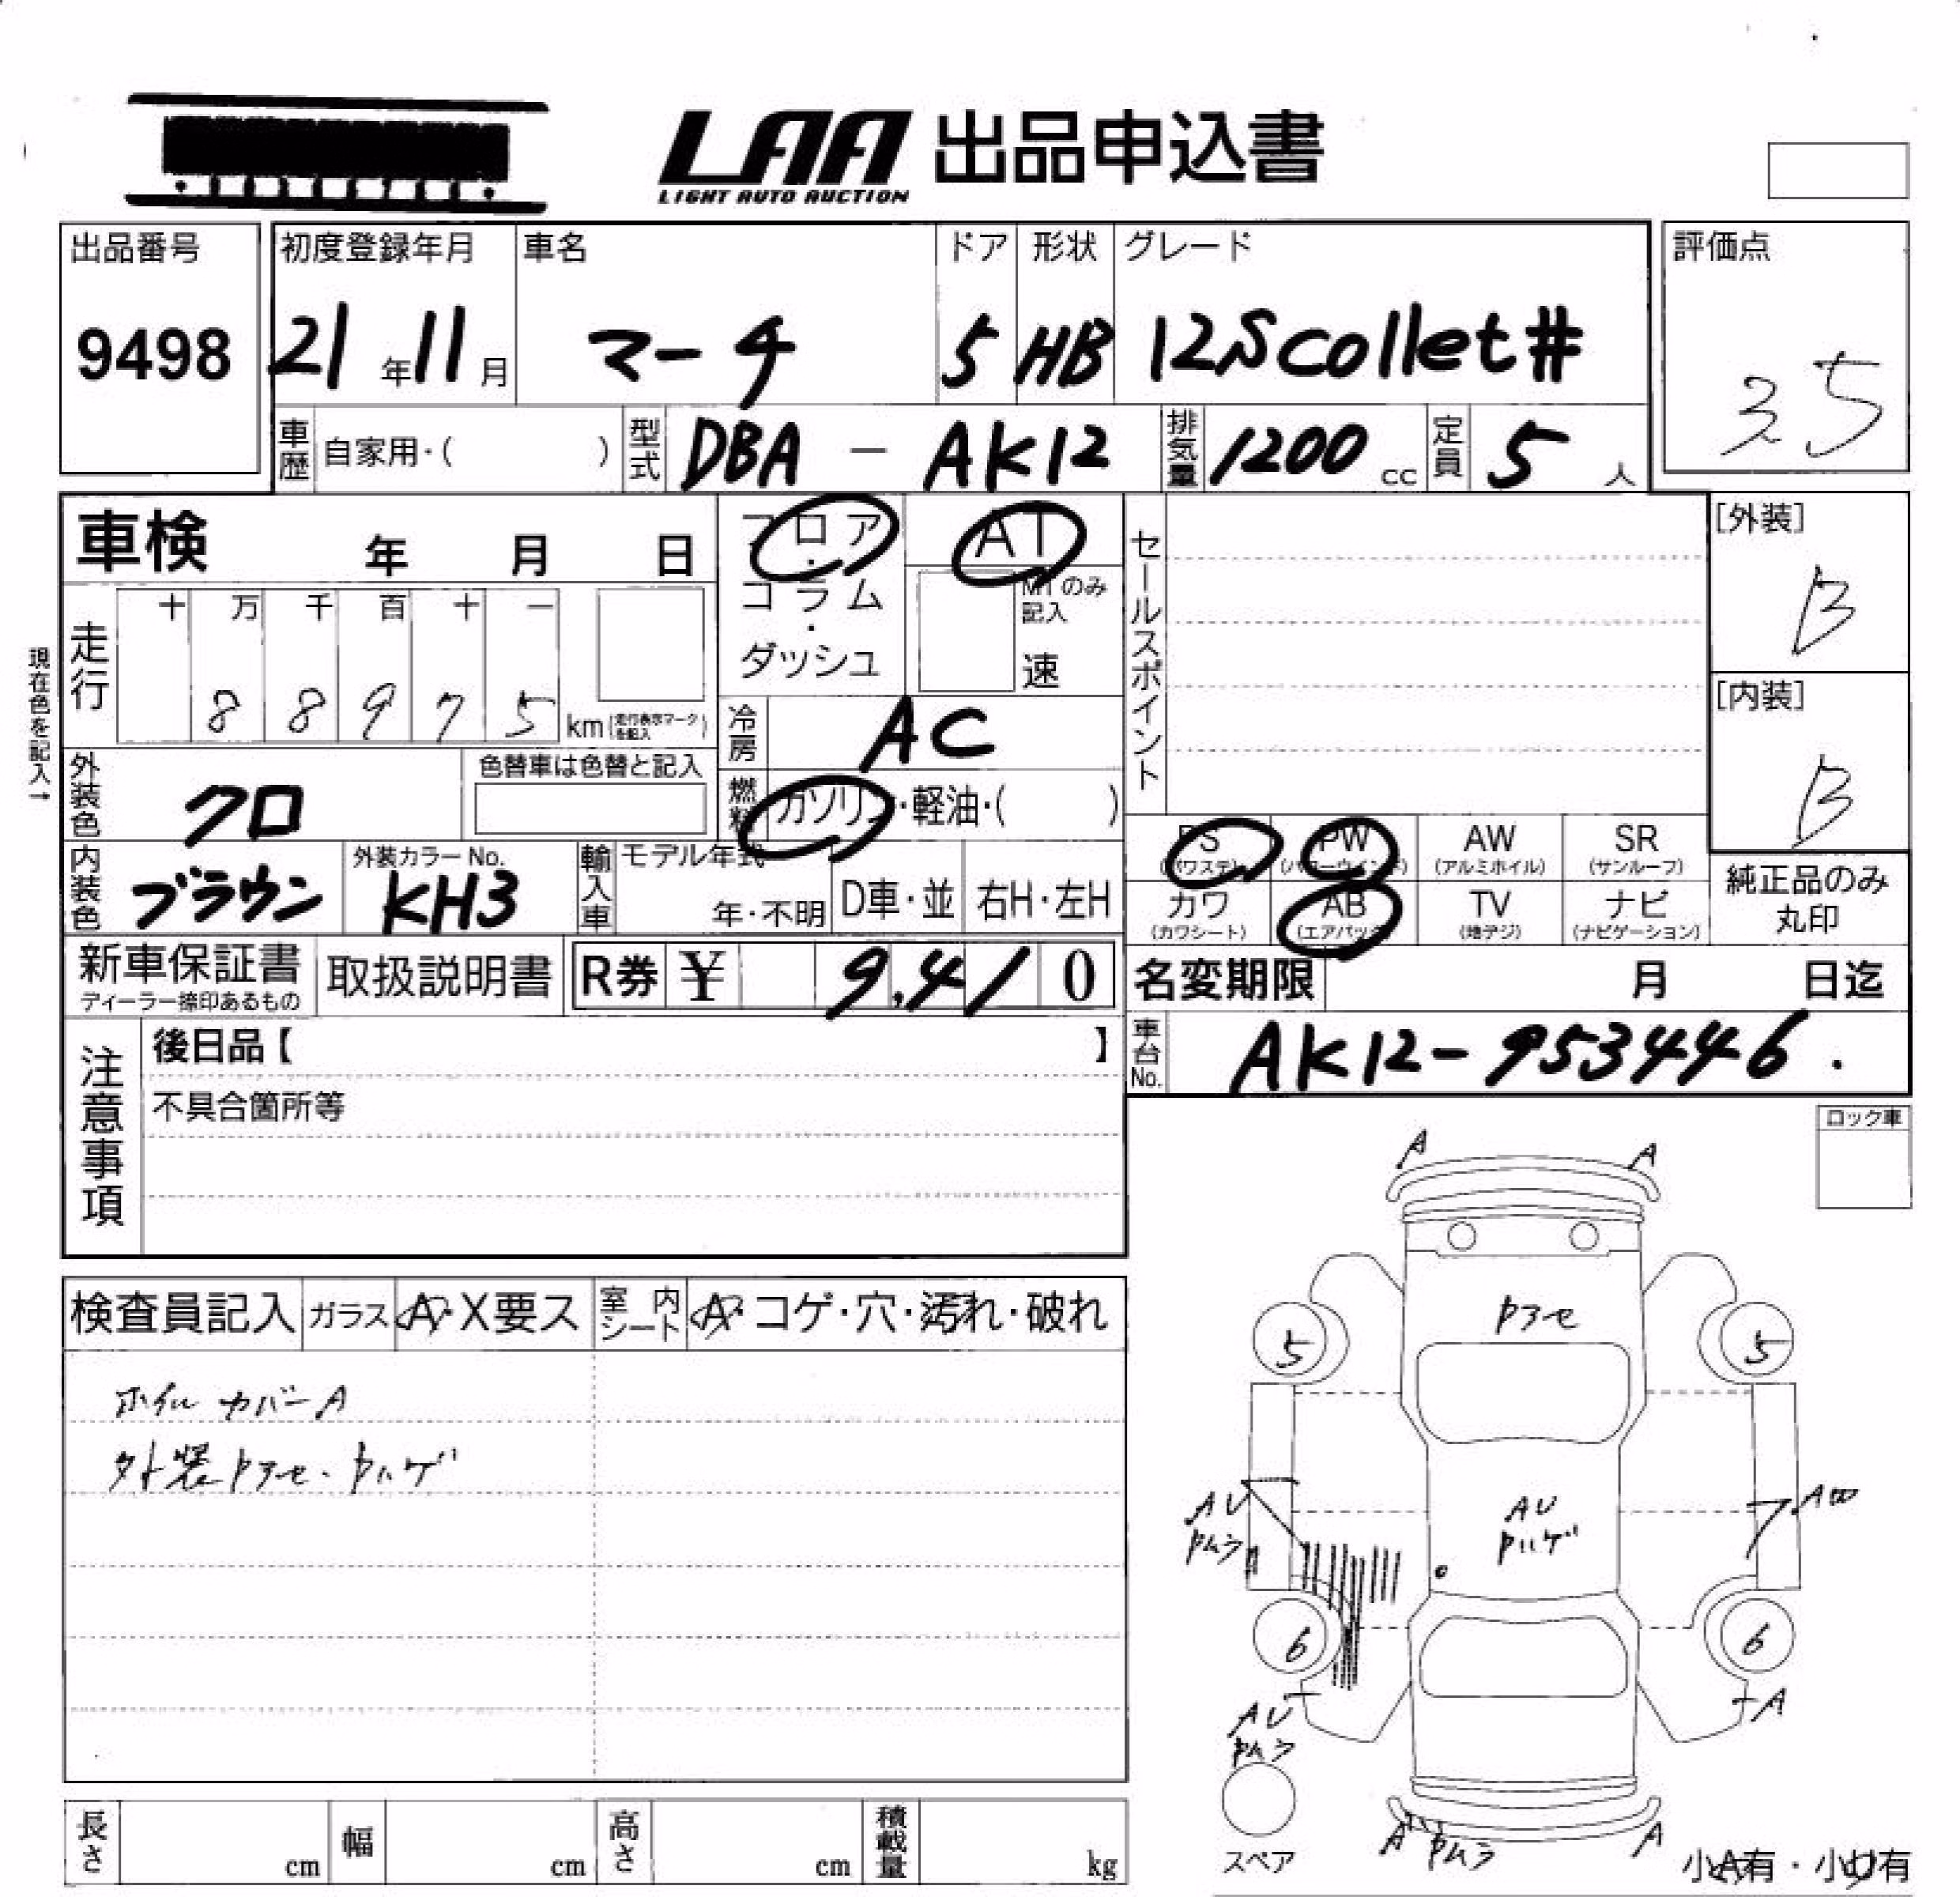 LAA 出品申込書
LIGHT AUTO AUCTION
出品番号 初度登録年月 車名 ドア 形状 グレード 評価点
9498 21年 11月 マーチ 5 HB 12Scollet# 3.5
車歴 自家用・( ) 型式 DBA - AK12 排気量 1200 cc 定員 5 人
車検 年 月 日 フロア・コラム・ダッシュ AT
MTのみ記入 速
セールスポイント
[外装] B
[内装] B
現在色を記入→
走行 十 万 千 百 十 一
8 8 9 7 5 km (走行表示マークを記入)
冷房 AC
外装色 クロ 色替車は色替と記入
燃料 ガソリン・軽油・( )
内装色 ブラウン 外装カラーNo. KH3 輸入車 モデル年式 年・不明 D車・並 右H・左H
PS (パワステ) PW (パワーウインドウ) AW (アルミホイル) SR (サンルーフ)
カワ (カワシート) AB (エアバック) TV (地デジ) ナビ (ナビゲーション)
純正品のみ
丸印
新車保証書 取扱説明書 R券 ¥ 9,410
ディーラー捺印あるもの
名変期限 月 日迄
車台No. AK12-953446.
注意事項
後日品【 】
不具合箇所等
ロック車
検査員記入 ガラス A・X要ス 室内シート A・コゲ・穴・汚れ・破れ
ホイルカバーA
外装Pアセ・Pハゲ
A A
Pアセ
5 5
AU
Pムラ
AU
Pハゲ
A
6 6
AU
Pムラ
A
スペア
A Pムラ A
小A有・小U有
長さ cm 幅 cm 高さ cm 積載量 kg